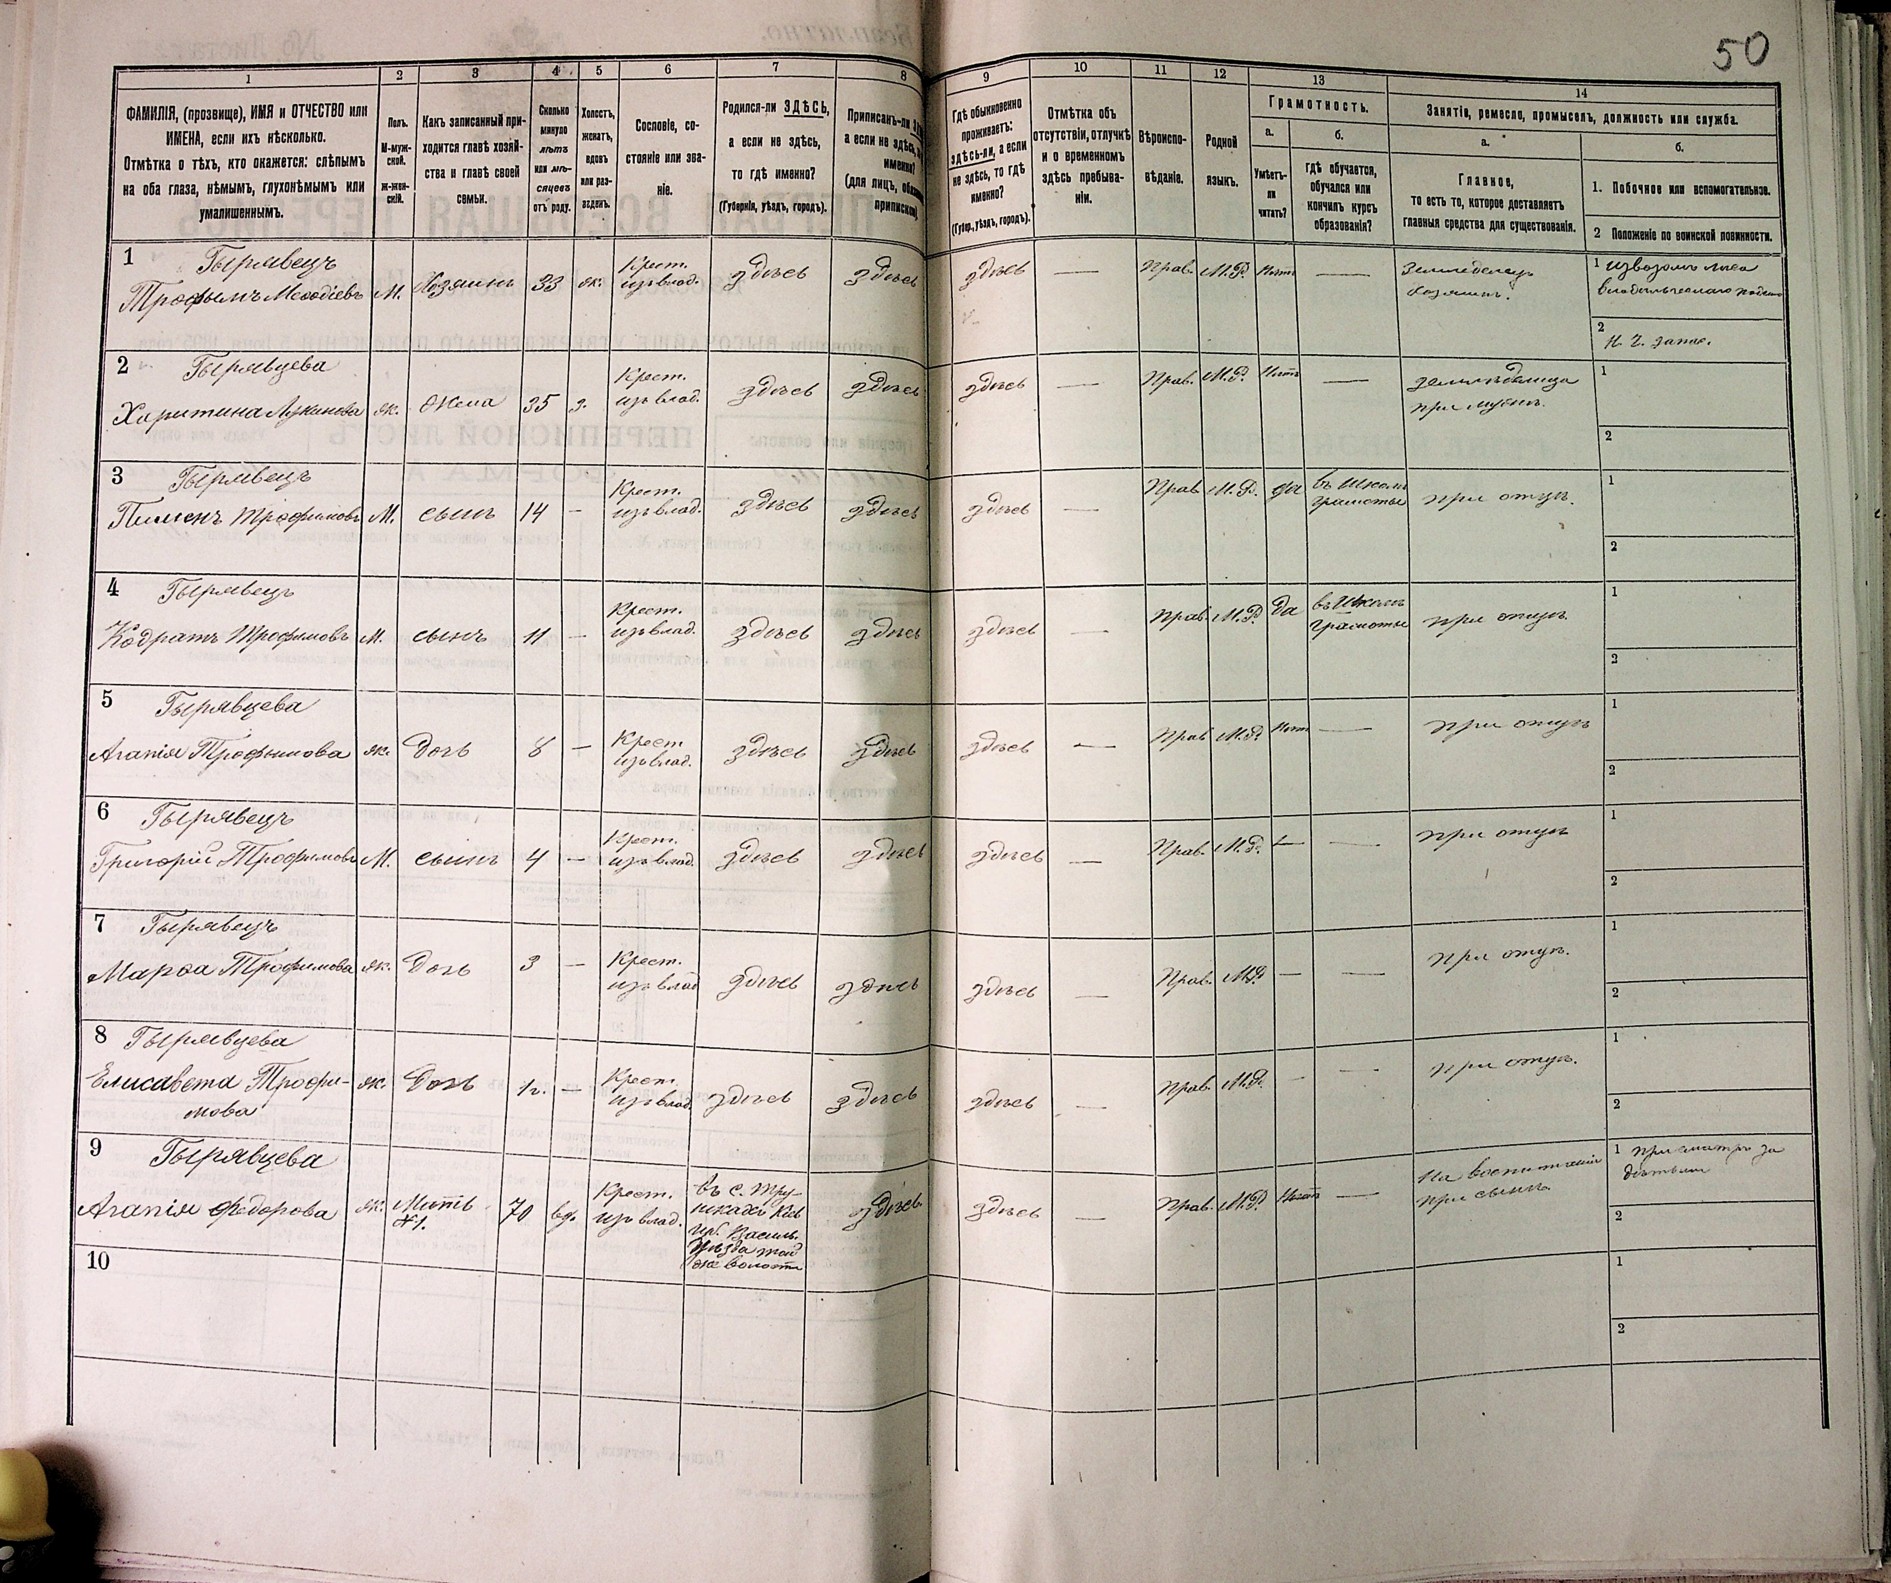 50
1 2 3 4 5 6 7 8 9 10 11 12 13 14
ФАМИЛІЯ, (прозвище), ИМЯ и ОТЧЕСТВО или
ИМЕНА, если ихъ нѣсколько.
Отмѣтка о тѣхъ, кто окажется: слѣпымъ
на оба глаза, нѣмымъ, глухонѣмымъ или
умалишеннымъ.
Полъ.
М-муж-
ской.
Ж-жен-
скій.
Какъ записанный при-
ходится главѣ хозяй-
ства и главѣ своей
семьи.
Сколько
минуло
лѣтъ
или мѣ-
сяцевъ
отъ роду.
Холостъ,
женатъ,
вдовъ
или раз-
веденъ.
Сословіе, со-
стояніе или зва-
ніе.
Родился-ли ЗДѢСЬ,
а если не здѣсь,
то гдѣ именно?
(Губернія, уѣздъ, городъ).
Приписанъ-ли
а если не здѣсь,
именно?
(для лицъ,
Гдѣ обыкновенно
проживаетъ:
здѣсь-ли, а если
не здѣсь, то гдѣ
именно?
(Губер., уѣздъ, городъ).
Отмѣтка объ
отсутствіи, отлучкѣ
и о временномъ
здѣсь пребыва-
ніи.
Вѣроиспо-
вѣданіе.
Родной
языкъ.
Грамотность.
а.
Умѣетъ-
ли
читать?
б.
Гдѣ обучается,
обучался или
кончилъ курсъ
образованія?
Занятіе, ремесло, промыселъ, должность или служба.
а.
Главное,
то есть то, которое доставляетъ
главныя средства для существованія.
б.
1. Побочное или вспомогательное.
2 Положеніе по воинской повинности.
1 Гырявецъ
Трофымъ Меѳодіевъ М. Хозяинъ 33 ж. Крест. изъ влад. здѣсь здѣсь здѣсь — Прав. М.Р. Нѣтъ — Земледелецъ
Хозяинъ.
1 извозомъ лѣса
2
Н. Ч. запас.
2 Гырявцева
Харитина Лукинова ж. Жена 35 з. Крест. изъ влад. здѣсь здѣсь здѣсь — Прав. М.Р. Нѣтъ —
при мужѣ.
1
2
3 Гырявецъ
Пименъ Трофимовъ М. сынъ 14 - Крест. изъ влад. здѣсь здѣсь здѣсь — Прав. М.Р. да въ Школѣ грамоты при отцѣ.
1
2
4 Гырявецъ
Кодратъ Трофимовъ М. сынъ 11 - Крест. изъ влад. здѣсь здѣсь здѣсь — Прав. М.Р. да въ Школѣ грамоты при отцѣ.
1
2
5 Гырявцева
Агапія Трофимова ж. Дочь 8 — Крест. изъ влад. здѣсь здѣсь здѣсь — Прав. М.Р. Нѣтъ — при отцѣ
1
2
6 Гырявецъ
Григорій Трофимовъ М. сынъ 4 — Крест. изъ влад. здѣсь здѣсь здѣсь — Прав. М.Р. — — при отцѣ
1
2
7 Гырявецъ
Марѳа Трофимова ж. Дочь 3 — Крест. изъ влад здѣсь здѣсь здѣсь — Прав. М.Р. — — при отцѣ.
1
2
8 Гырявцева
Елисавета Трофи-
мова ж. Дочь 1г. — Крест. изъ влад. здѣсь здѣсь здѣсь — Прав. М.Р. - — при отцѣ.
1
2
9 Гырявцева
Агапія Федорова ж. Мать
№1. 70 вд. Крест. изъ влад.
въ с. Тру-
шкахъ Кіев
губ. Василь.
Уѣзда той
же волости
здѣсь здѣсь — Прав. М.Р. Нѣтъ —
На воспитаніи
при сынѣ.
1 присмотръ за
дѣтьми
2
10
1
2